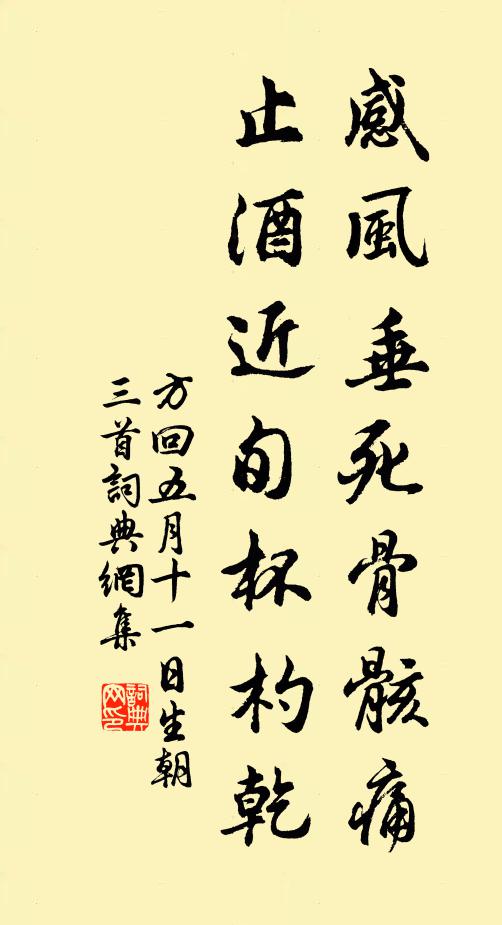 感風垂死骨骸痛
止酒近旬杯杓乾
方回五月十一日生朝
三首詞典網集
詞典網印